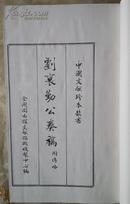 中國文獻珍本叢書
劉襄勤公奏稿
全國圖書館文獻縮微複製中心編